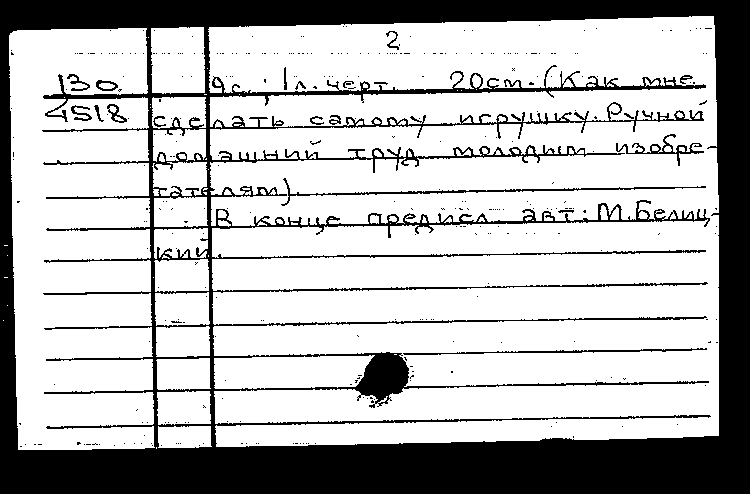 2
130 9с.; 1л. черт. 20см. (Как мне
4518 сделать самому игрушку. Ручной
домашний труд молодым изобре-
тателям).
В конце предисл. авт: М. Белиц-
кий.